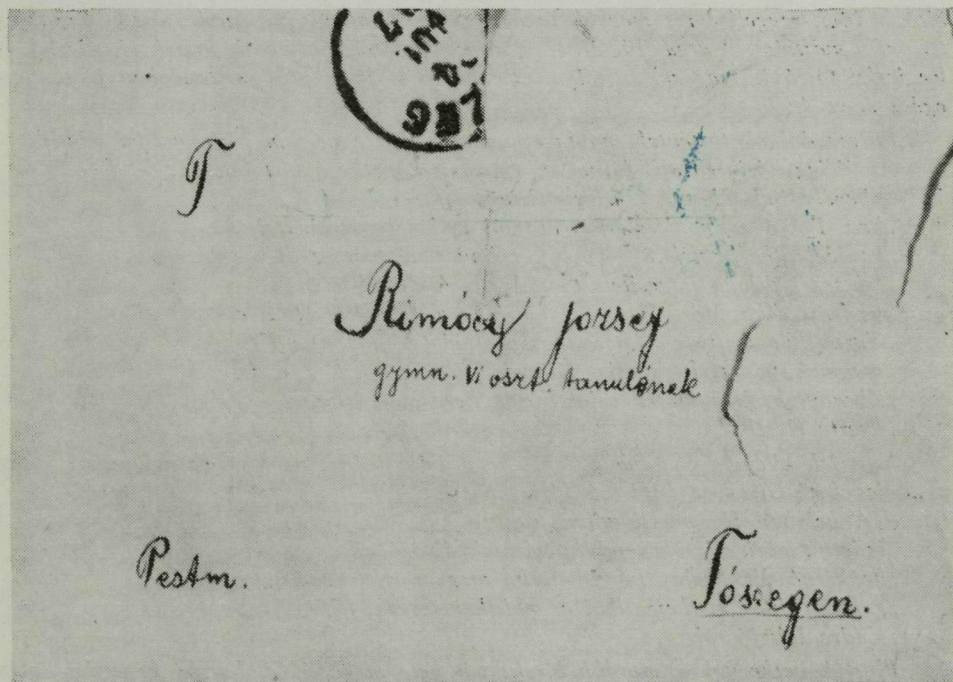 T
Rimóczy József
gymn. VI oszt. tanulónak
Pestm.
Tószegen.